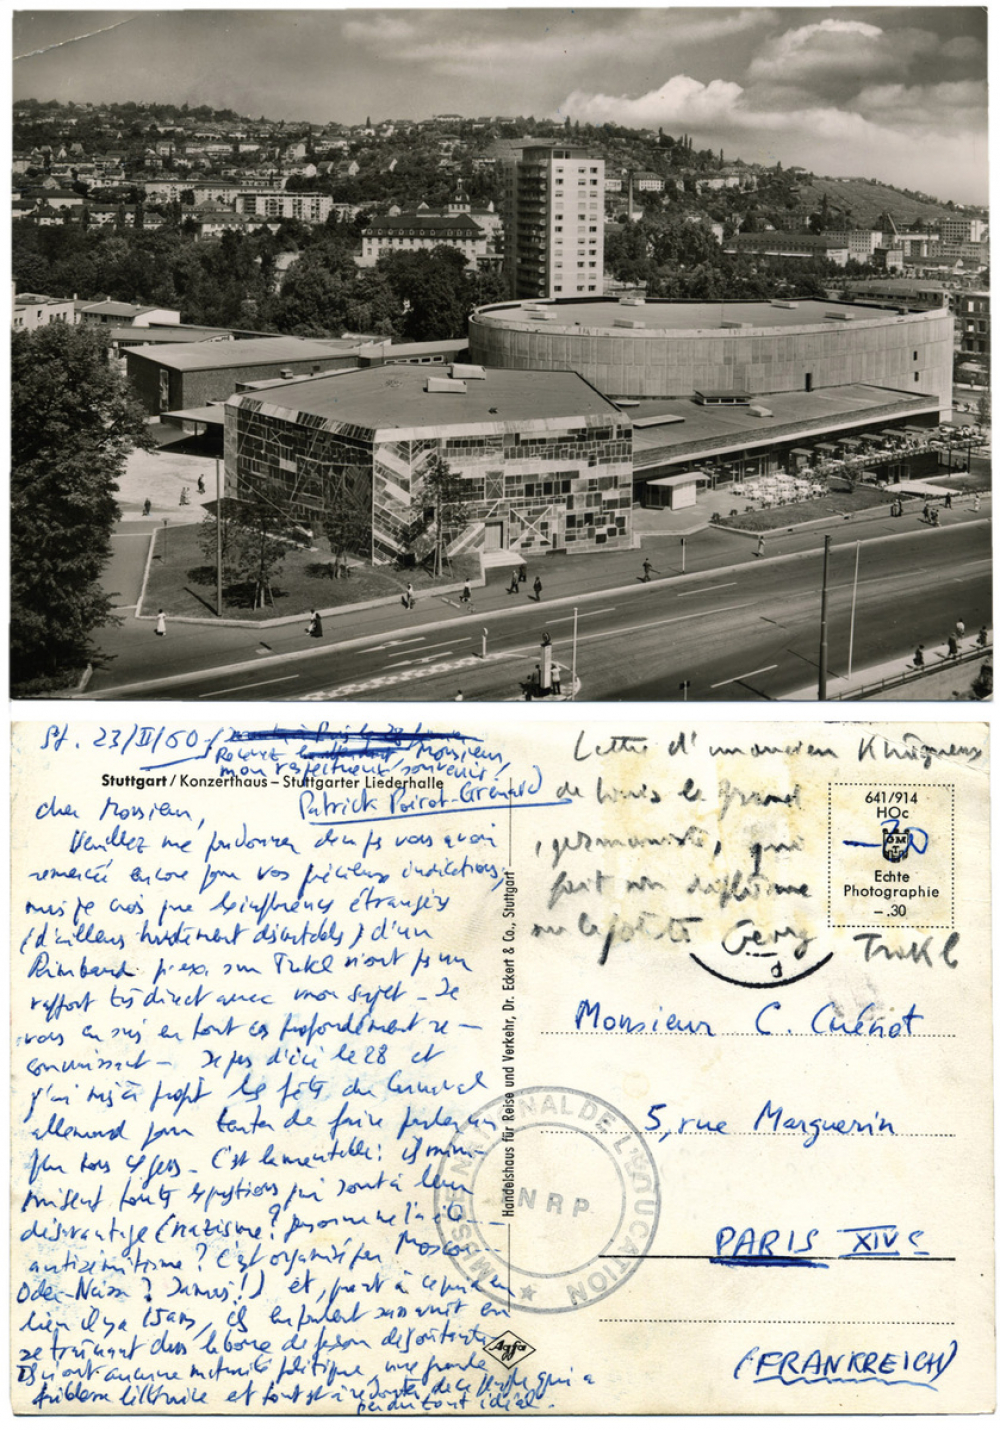 St. 23/II/60
Recevez Monsieur,
mon respectueux souvenir.
Patrick Poirot-Grenard
Stuttgart / Konzerthaus – Stuttgarter Liederhalle
cher Monsieur,
Veuillez me pardonner de ne pas vous avoir
remercié encore pour vos précieuses indications,
mais je crois que les influences étrangères
(d'ailleurs hautement discutables) d'un
Rimbaud p. ex. sur Trakl n'ont pas un
rapport très direct avec mon sujet – Je
vous en suis en tout cas profondément re-
connaissant – Je pars d'ici le 28 et
j'ai mis à profit les fêtes du Carnaval
allemand pour tenter de faire parler un
peu tous ces gens. C'est lamentable: ils mini-
misent toutes questions qui sont à leur
désavantage (nazisme? personne ne l'a été
antisémitisme? C'est organisé par Moscou –
Oder-Neisse? Jamais!) et, quant à ce qui a eu
lieu il y a 15 ans, ils en parlent sans arrêt en
se traînant dans la boue de façon dégoûtante
Ils n'ont aucune maturité politique, une grande
faiblesse et tout est à redouter de ce peuple qui a
perdu tout idéal.
Lettre d'un ancien Khâgneux
de Louis le Grand
, germaniste, qui
fait son diplôme
sur le poète Georg Trakl
641/914
HOc
GMT
–30
Echte
Photographie
–.30
Monsieur C. Cuénot
5, rue Marguerin
PARIS XIVe
(FRANKREICH)
Handelshaus für Reise und Verkehr, Dr. Eckert & Co., Stuttgart
MUSEE NATIONAL DE L'EDUCATION
INRP
Agfa